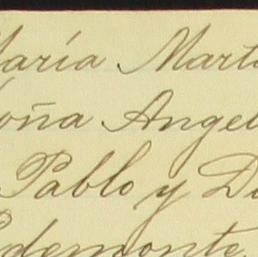 María Mart
oña Angel
Pablo y D
demonte